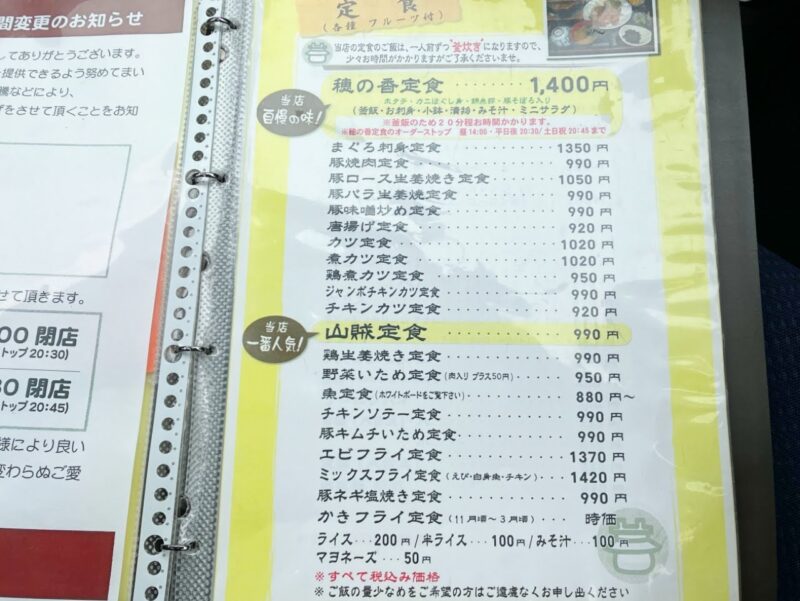 間変更のお知らせ
してありがとうございます。
提供できるよう努めてまい
機などにより、
げをさせて頂くことをお知
せて頂きます。
00 閉店
トップ 20:30)
30 閉店
トップ 20:45)
様により良い
変わらぬご愛
定食
(各種 フルーツ付)
当店の定食のご飯は、一人前ずつ"釜炊き"になりますので、
少々お時間がかかりますがご了承くださいませ。
当店
自慢の味!
穂の香定食 ・・・・・ 1,400円
ホタテ・カニほぐし身・錦糸卵・鶏そぼろ入り
(釜飯・お刺身・小鉢・漬物・みそ汁・ミニサラダ)
※釜飯のため20分程お時間かかります。
※穂の香定食のオーダーストップ 昼14:00・平日夜20:30/土日祝20:45まで
まぐろ刺身定食 1350円
豚焼肉定食 990円
豚ロース生姜焼き定食 1050円
豚バラ生姜焼定食 990円
豚味噌炒め定食 990円
唐揚げ定食 920円
カツ定食 1020円
煮カツ定食 1020円
鶏煮カツ定食 950円
ジャンボチキンカツ定食 990円
チキンカツ定食 920円
当店
一番人気!
山賊定食 990円
鶏生姜焼き定食 990円
野菜いため定食(肉入り プラス50円) 950円
魚定食(ホワイトボードをご覧下さい) 880円〜
チキンソテー定食 990円
豚キムチいため定食 990円
エビフライ定食 1370円
ミックスフライ定食(えび・白身魚・チキン) 1420円
豚ネギ塩焼き定食 990円
かきフライ定食(11月頃〜3月頃) 時価
ライス・・・200円/半ライス・・・100円/みそ汁・・・100円
マヨネーズ・・・50円
※すべて税込み価格
※ご飯の量少なめをご希望の方はご遠慮なくお申し出ください